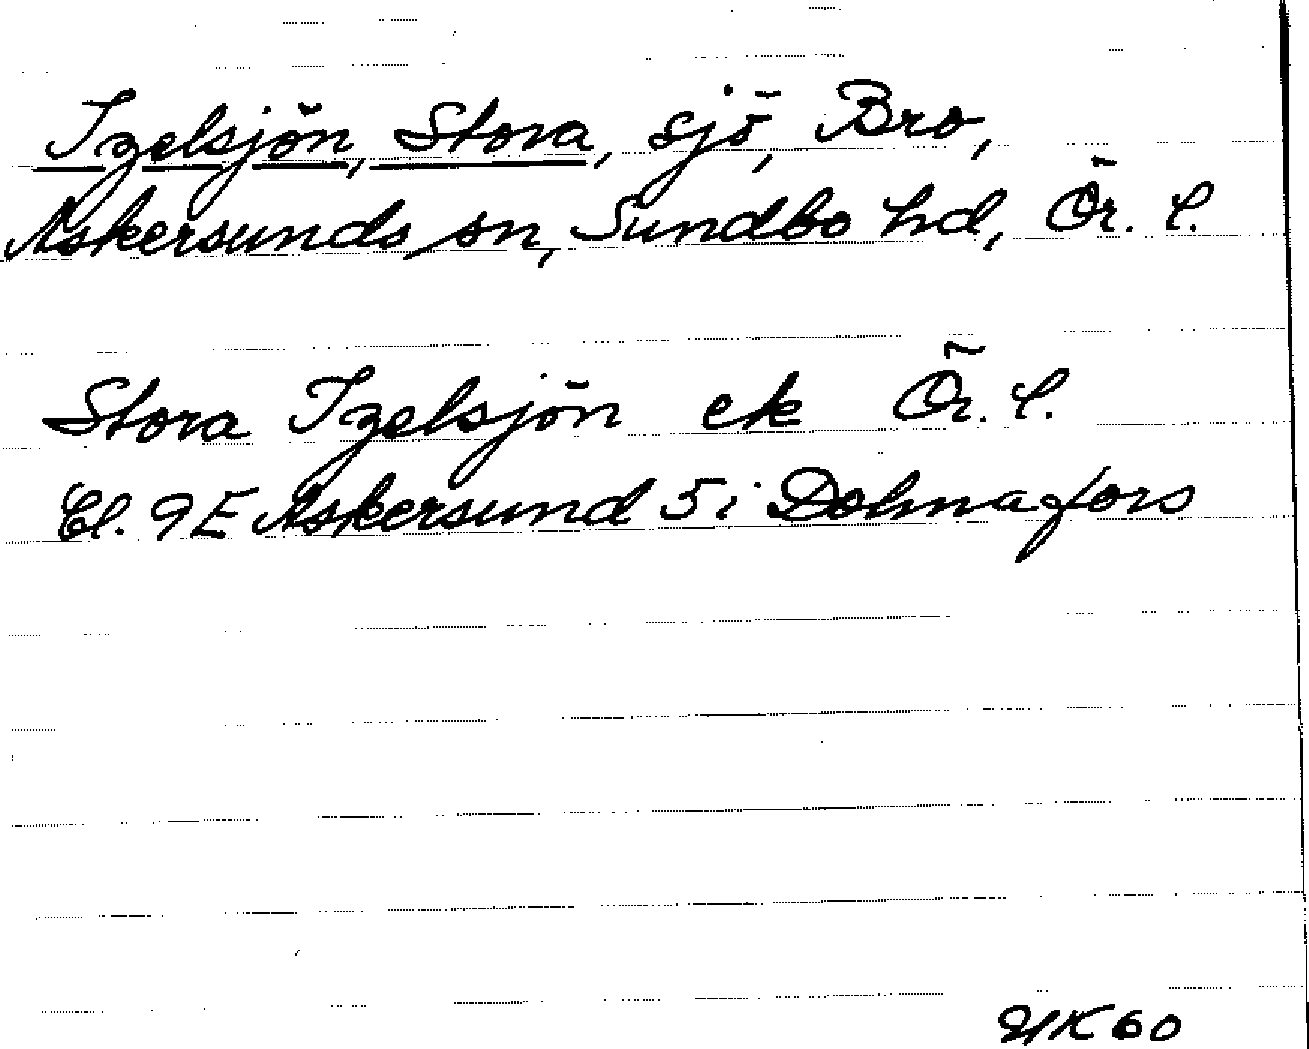 Igelsjön, Stora, sjö, Bro,
Askersunds sn, Sundbo hd, Ör. l.
Stora Igelsjön ek Ör. l.
Bl. 9E Askersund 5i Dohnafors
UK 60